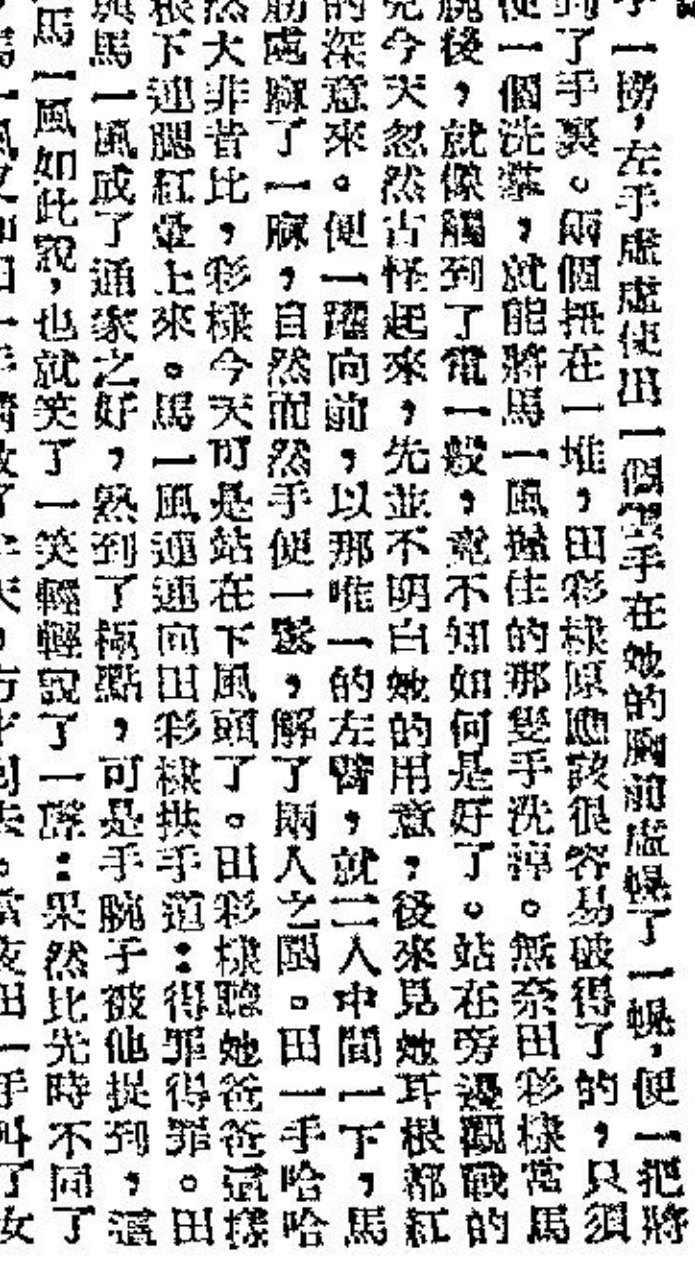 一撈，左手虛虛使出一個雲手在她的胸前虛幌了一幌，便一把將
到了手裏。兩個扭在一堆，田彩棣原應該很容易破得了的，只須
使一個洗拳，就能將馬一風握住的那隻手洗掉。無奈田彩棣當馬
腕後，就像觸到了電一般，竟不知如何是好了。站在旁邊觀戰的
見今天忽然古怪起來，先並不明白她的用意，後來見她耳根都紅
的深意來。便一躍向前，以那唯一的左臂，就二人中間一下，馬
筋處麻了一麻，自然而然手便一鬆，解了兩人之圍。田一手哈哈
然大非昔比，彩棣今天可是站在下風頭了。田彩棣聽她爸爸這樣
根下連腮紅暈上來。馬一風連連向田彩棣拱手道：得罪得罪。田
與馬一風成了通家之好，熟到了極點，可是手腕子被他捉到，這
馬一風如此說，也就笑了一笑輕輕說了一聲：果然比先時不同了